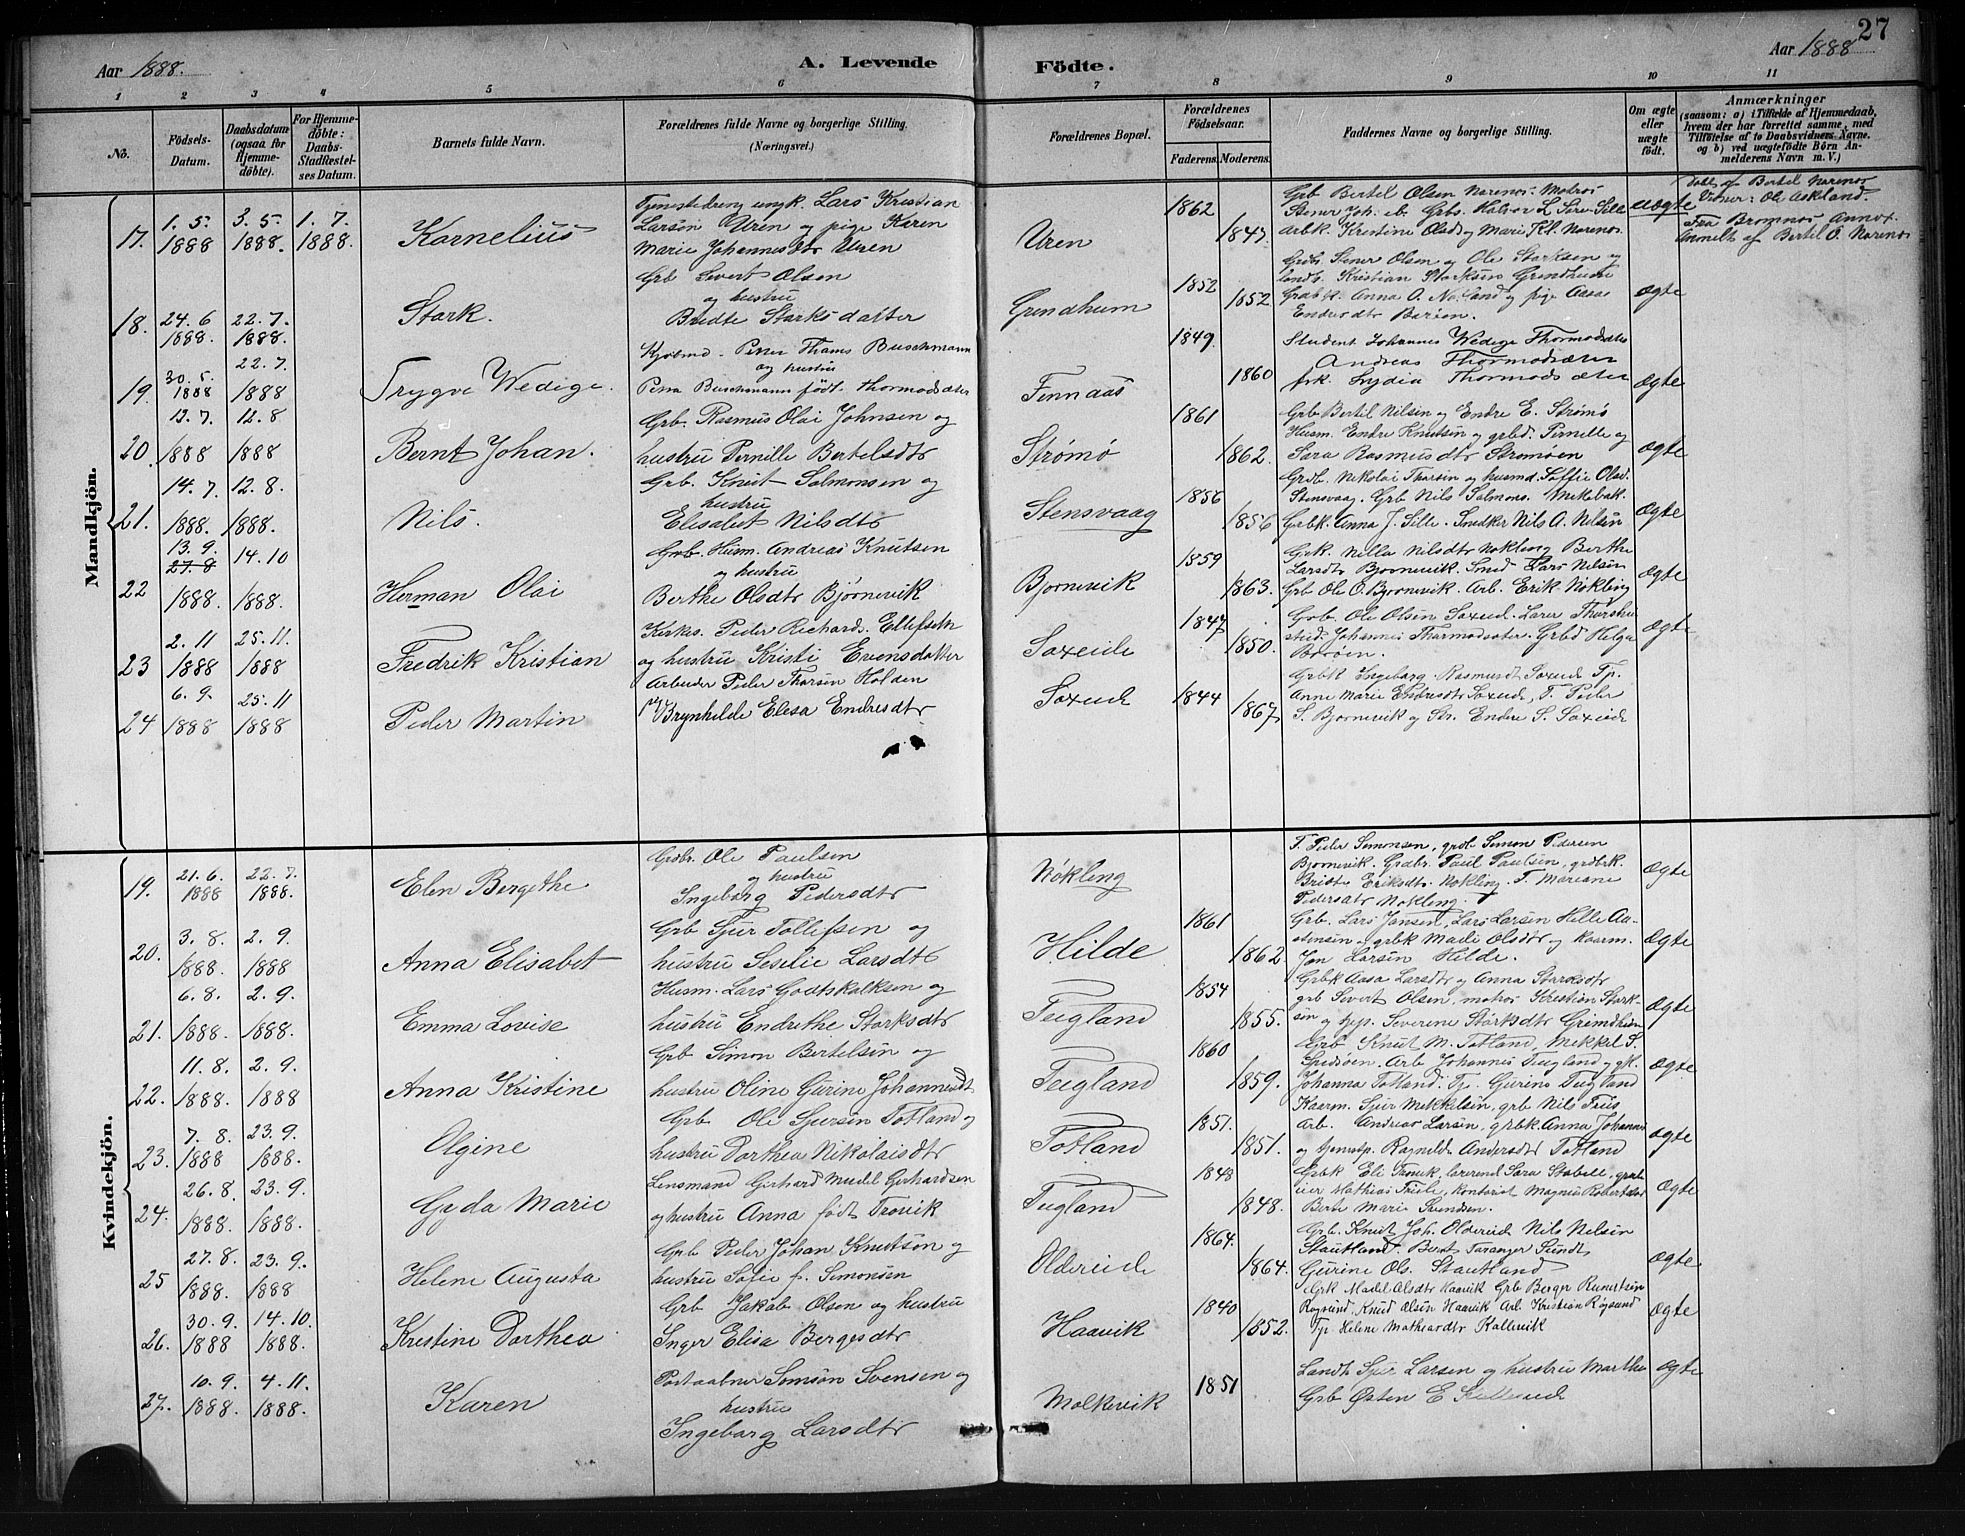 27
Aar 1888.
A. Levende
Födte.
Aar 1888
1 2 3 4 5 6 7 8 9 10 11
No.
Födsels-Datum.
Daabsdatum (ogsaa for Hjemme-döbte).
For Hjemme-döbte: Daabs-Stadfæstel-ses Datum.
Barnets fulde Navn.
Forældrenes fulde Navne og borgerlige Stilling.
(Næringsvei.)
Forældrenes Bopæl.
Forældrenes Födselsaar.
Faderens. Moderens.
Faddernes Navne og borgerlige Stilling.
Om ægte eller uægte födt.
Anmærkninger
(saasom: a) i Tilfælde af Hjemmedaab, hvem der har forrettet samme, med Tilföielse af to Daabsvidners Navne. og b) ved uægtefödte Börn An-melderens Navn m. V.)
Mandkjön.
17. 1.5. 1888 3.5. 1888. 1.7. 1888. Kornelius
Tjenestedreng ungk. Lars Kristian
Larsen Uren og pige Karen
Marie Johannesdtr Uren
Uren 1862 1847.
Grb Bertel Olsen Narenos. Matros
Arbk. Kristine Olsd. og Marie Kl. Narenos.
uægte
Døbt af Bertel Narenos
Vidner: Ole Aakland.
Fra Bremnes Annex.
Anmelt af Bertel O. Narenos
18. 24.6 1888. 22.7. 1888. Stark.
Grb Severt Olsen
og hustru
Bredte Starksdatter
Grindheim 1852 1852.
Grdbr. Stener Olsen og Ole Starksen og
landb. Kristian Starksen Grindheim
Grdbk. Anna O. Nøland og pige Aasa
Endresdtr Barøen.
ægte
19. 30.5. 1888 22.7. 1888 Trygve Wedige.
Kjøbmd. Peter Thams Buschmann
og hustru
Petra Buschmann født Thormodsæter
Finnaas 1849. 1860
Student Johannes Wedige Thormodsæter
Andreas Thormodsæter
frk. Lydia Thormodsæter
ægte
20. 12.7. 1888 12.8 1888 Bernt Johan.
Grb. Rasmus Olai Johnsen og
hustru Pernille Bertelsdtr
Strømø 1861 1862.
Grb Bertil Nilsen og Endre E. Strømø
Husm. Endre Knutsen og grbd. Pernille og
Sara Rasmusdtr Strømøen
ægte
21. 14.7. 1888. 12.8. 1888. Nils.
Grb. Knut Salmonsen og
hustru
Elisabet Nilsdtr
Stensvaag 1856 1856
Grdb. Nikolai Tharsen og husmd. Soffie Olsd.
Stensvaag. Grb Nils Salmons. Mekebak.
Grbk. Anna J. Sille. Snedker Nils A. Nelsen
ægte
22 13.9. 27.8 1888. 14.10 1888. Herman Olai
Grb. Husm. Andreas Knutsen
og hustru
Berthe Olsdtr Bjørnevik
Bjørnevik 1859 1863.
Grk. Nella Nilsdtr Nøkling Berthe
Larsdtr Bjørnevik. Smed Lars Nilsen
Grb Ole O. Bjørnevik. Arb. Erik Nøkling
ægte
23 2.11 1888 25.11. 1888 Fredrik Kristian
Kirkes. Peder Richards. Ellefsen
og hustru Kristi Evensdatter
Saxeide 1847 1850.
Grb. Ole Olsen Saxeid. Lærer Thorsten
stud. Johannes Thormodsæter. Grbd Helga
Barøen.
ægte
24 6.9. 1888 25.11 1888 Peder Martin
Arbeider Peder Tharsen Holden
Brynhilde Elesa Endresdtr
Saxeid 1844 1867
Grbk Ingeborg Rasmusdt Saxeid Tp.
Anne Marie Endresdtr Saxeid, T. Peder
S. Bjørnevik og Sr. Endre S. Saxeid
Kvindekjön.
19. 21.6. 1888 22.7. 1888. Elen Bergithe
Grdbr. Ole Paulsen
og hustru
Ingeborg Pedersdtr
Nøkling
T. Peder Simonsen, grdb Simon Pedersen
Bjørnevik. Grdbr. Paul Paulsen, grdbrk.
Bridte Eriksdtr. Nøkling. T. Mariane
Pedersdtr Nøkling.
ægte
20. 3.8. 1888. 2.9. 1888 Anna Elisabet
Grb Sjur Tollefsen og
hustru Seselie Larsdtr
Hilde 1861 1862
Grb. Lars Jansen, Lars Larsen Helle Aa-
stensen, grbk Madli Olsdtr og Kaarm.
Jon Larsen Hilde.
ægte
21. 6.8. 1888. 2.9. 1888. Emma Lovise
Husm. Lars Godtskalksen og
hustru Endrethe Starksdtr
Teigland 1854 1855.
Grbk Aasa Larsdtr og Anna Starksdtr
grb Severt Olsen, matros Kristian Stark-
sen og tjp. Severine Starksdtr Grindheim
ægte
22. 11.8. 1888. 2.9. 1888 Anna Kristine
Grb Simon Bertelsen og
hustru Oline Gurine Johannesdt
Teigland 1860 1859.
Grb Knut M. Totland, Mekkel S.
Spidsøen. Arb Johannes Teigland og gk.
Johanna Totland. Tp. Gurine Teigland
ægte
23. 7.8. 1888 23.9. 1888. Olgine
Grb. Ole Sjursen Totland og
hustru Dorthea Nikolaisdtr
Totland 1851. 1851.
Kaarm. Sjur Mekkelsen, grb Nils Friis
Arb. Andreas Larsen, grbk Anna Johannes
og tjenestp. Ragnild Andersdtr Totland
ægte
24. 26.8. 1888. 23.9. 1888. Gyda Marie
Lensmand Gerhard Mudel Gerhardsen
og hustru Anna født Trovik
Teigland 1848 1848.
Grbk Eli Trovik, lærerind Sara Stabell, grub-
eier Mathias Friele, kontorist Magnus Robertsen
Berte Marie Svendsen.
ægte
25 27.8. 1888. 23.9. 1888 Helene Augusta
Grb Peder Johan Knutsen og
hustru Sofie f. Simonsen
Oldereide 1864. 1864.
Grb. Knut Joh. Oldereid Nils Nelsen
Stautland. Bernt Taranger Sund
Gurine Ols. Stautland
ægte
26. 30.9. 1888 14.10. 1888. Kristine Dorthea
Grb Jakob Olsen og hustru
Inger Elisa Bergesdtr
Haavik 1840 1852.
Gjk Madel Olsdtr Haavik Grb Berger Runertsen
Røgsund, Knud Olsen Haavik Arb. Kristian Røgsund
Tp. Helene Mathiasdtr Kallevik
ægte
27. 10.9. 1888. 4.11. 1888. Karen
Postaabner Simson Svensen og
hustru
Ingeborg Larsdtr
Mølkevik 1851
Landh. Sjur Larsen og hustru Martha
Grb Østen E
ægte